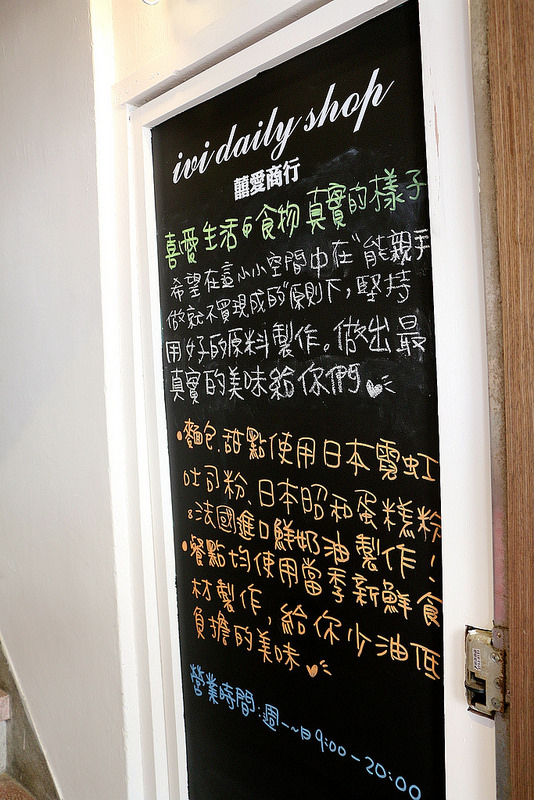 ivi daily shop
囍愛商行
喜愛生活の食物 真實的樣子
希望在這小小空間中在"能親手
做就不買現成的"原則下，堅持
用好的原料製作。做出最
真實的美味給你們
•麵包.甜點使用日本霓虹
吐司粉、日本昭和蛋糕粉
&法國進口鮮奶油製作！
•餐點均使用當季新鮮食
材製作，給你少油低
負擔的美味
營業時間：週一~日 9:00-20:00